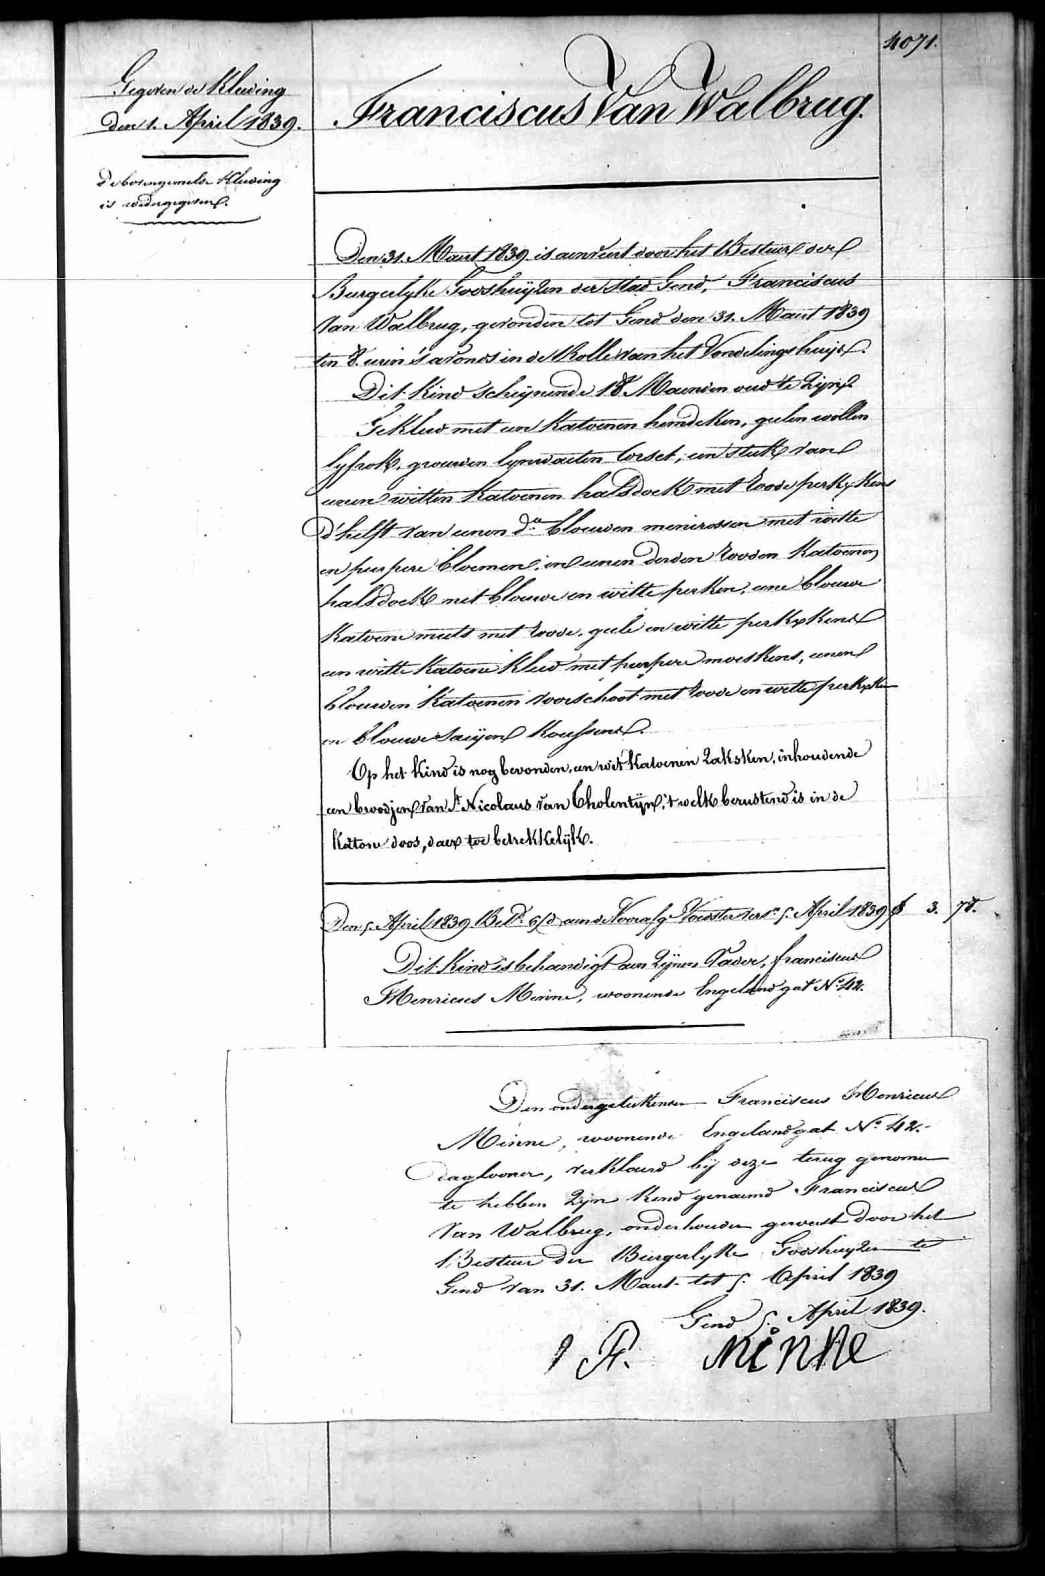 4071.
Gegeven de Kleeding
Den 1. April 1839.
de bovengemelde Kleeding
is wedergegeven.
Franciscus Van Walbrug.
Den 31. Maart 1839 is aenveert door het Bestuur der
Burgerlyke Godshuyzen der stad Gend, Franciscus
Van Walbrug, gevonden tot Gend den 31. Maart 1839
ten 8. uren 's avonds in de Rolle van het Vondelingshuys.
Dit Kind scheynende 18 Maenden oud te zyn,
Gekleed met een Katoenen hemdeken, geelen wollen
lyfrok, grauwen lynwaeten Corset, een stuk van
eenen witten Katoenen halsdoek met roode perkxkens
d'helft van eenen do. blauwen met witte
en purpere bloemen, en eenen derden rooden Katoenen
halsdoek met blauwe en witte perken, eene blauwe
Katoene muts met roode, geele en witte perkxkens
een witte Katoene Kleed met purpere moeskens, eenen
blauwen Katoenen voorschoot met roode en witte perkxken
en blauwe saeyen Koussens.
Op het Kind is nog bevonden, een wit Katoenen zaksken, inhoudende
een broodjen van St. Nicolaus van Tholentyn, 't welk berustend is in de
Katone doos, daer toe betrekkelyk.
Den 5. April 1839 Bet. 6/d aen de Voorsz. Voester tot 5. April 1839 f 3. 78.
Dit Kind is behandigt aen zynen Vader, franciscus
Henricus Minne, woonende Engelandgat No. 42.
Den ondergeteekenden Franciscus Henricus
Minne, woonende Engelandgat No. 42.
daglooner, verklaerd by deze terug genomen
te hebben zyn kind genaemd Franciscus
Van Walbrug, onderhouden geweest door het
Bestuur der Burgerlyke Godshuyzen te
Gend van 31. Maart tot 5. April 1839
Gend 5. April 1839.
F. minne